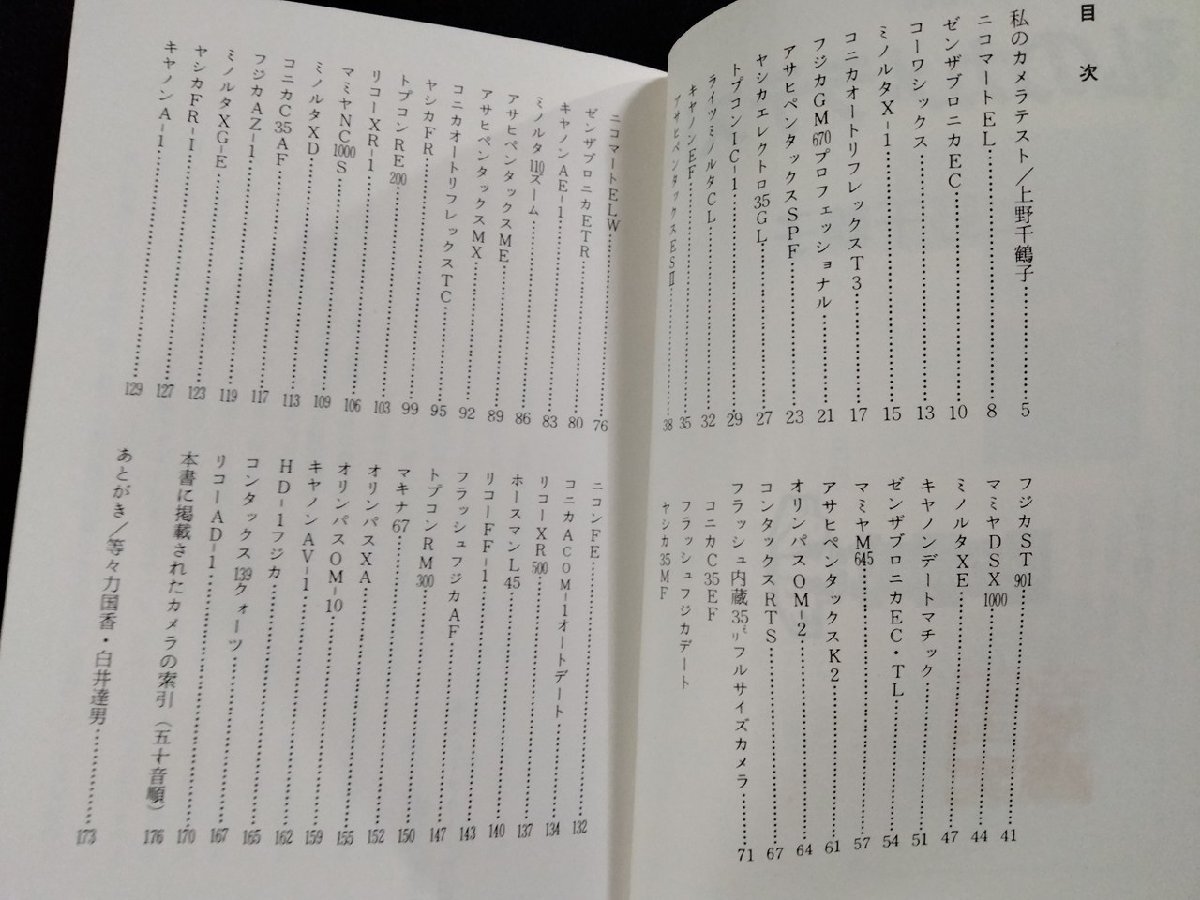 目次
私のカメラテスト/上野千鶴子……5
ニコマートEL……8
ゼンザブロニカEC……10
コーワシックス……13
ミノルタX-1……15
コニカオートリフレックスT3……17
フジカGM670プロフェッショナル……21
アサヒペンタックスSPF……23
ヤシカエレクトロ35GL……27
トプコンIC-1……29
ライツミノルタCL……32
キヤノンEF……35
アサヒペンタックスESⅡ……38
フジカST901……41
マミヤDSX1000……44
ミノルタXE……47
キヤノンデートマチック……51
ゼンザブロニカEC・TL……54
マミヤM645……57
アサヒペンタックスK2……61
オリンパスOM-2……64
コンタックスRTS……67
フラッシュ内蔵35ミリフルサイズカメラ……71
コニカC35EF
フラッシュフジカデート
ヤシカ35MF
ニコマートELW……76
ゼンザブロニカETR……80
キヤノンAE-1……83
ミノルタ110ズーム……86
アサヒペンタックスME……89
アサヒペンタックスMX……92
コニカオートリフレックスTC……95
ヤシカFR……99
トプコンRE200……103
リコーXR-1……106
マミヤNC1000S……109
ミノルタXD……113
コニカC35AF……117
フジカAZ-1……119
ミノルタXG-E……123
ヤシカFR-I……127
キヤノンA-1……129
ニコンFE……132
コニカACOM-1オートデート……134
リコーXR500……137
ホースマンL45……140
リコーFF-1……143
フラッシュフジカAF……147
トプコンRM300……150
マキナ67……152
オリンパスXA……155
オリンパスOM-10……159
キヤノンAV-1……162
HD-1フジカ……165
コンタックス139クォーツ……167
リコーAD-1……170
本書に掲載されたカメラの索引(五十音順)176
あとがき/等々力国香・白井達男……173